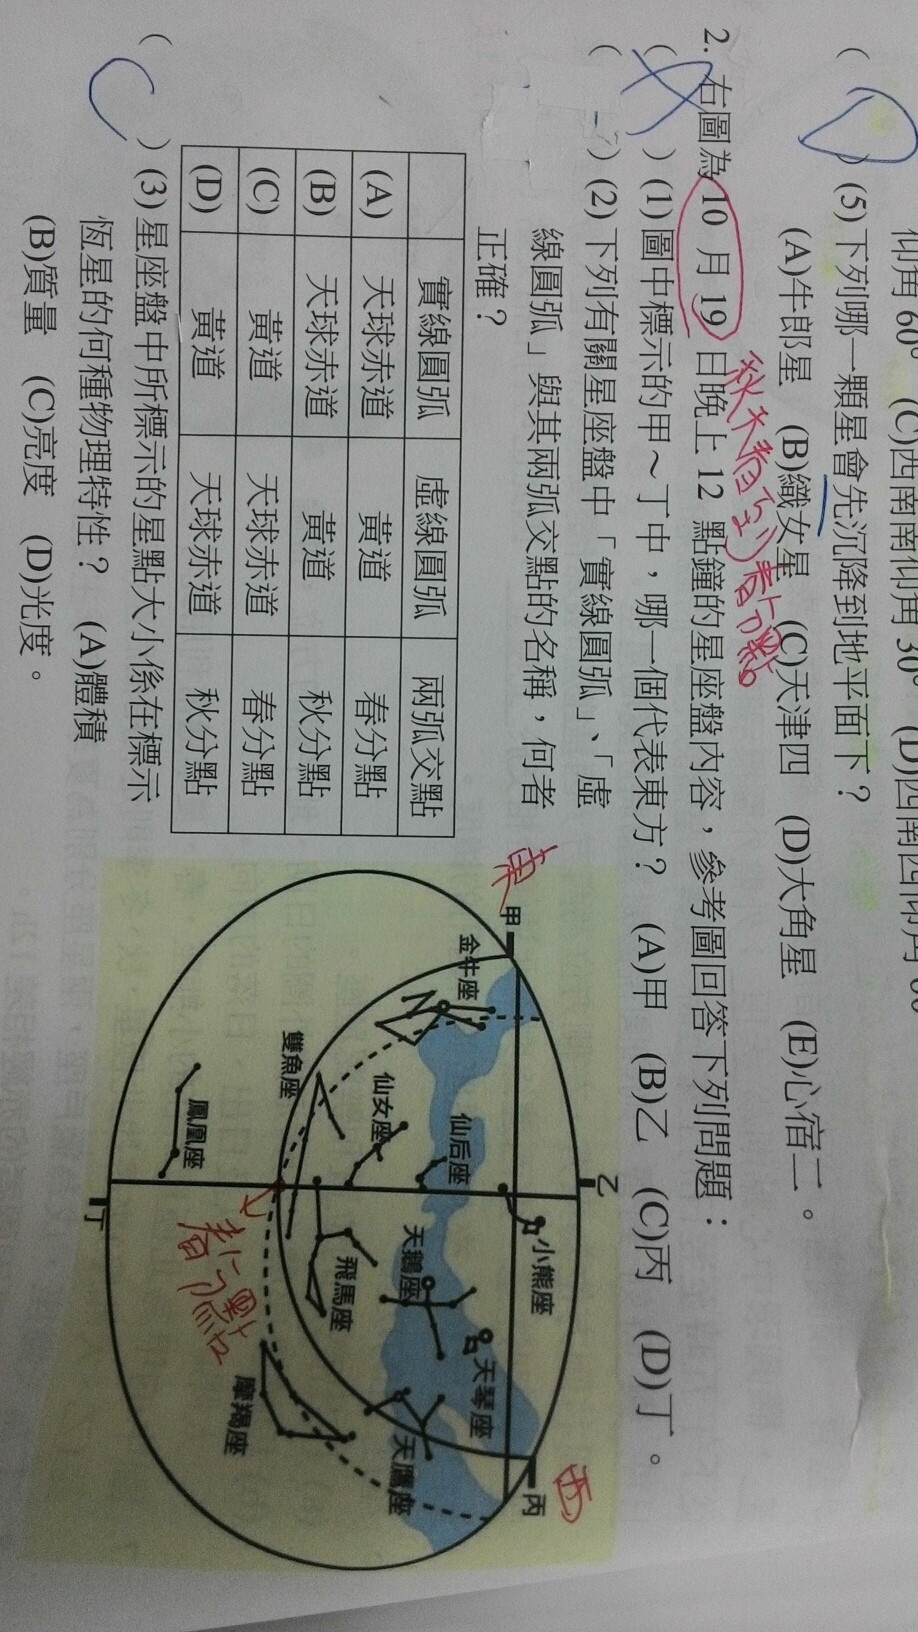 仰角 60° (C)西南南仰角 30° (D)西南西仰角 60
( D ) (5)下列哪一顆星會先沉降到地平面下？
(A)牛郎星 (B)織女星 (C)天津四 (D)大角星 (E)心宿二。
秋天看到春分點。
2. 右圖為 10 月 19 日晚上 12 點鐘的星座盤內容，參考圖回答下列問題：
( ) (1)圖中標示的甲～丁中，哪一個代表東方？ (A)甲 (B)乙 (C)丙 (D)丁。
( ) (2)下列有關星座盤中「實線圓弧」、「虛
線圓弧」與其兩弧交點的名稱，何者
正確？
實線圓弧 虛線圓弧 兩弧交點
(A) 天球赤道 黃道 春分點
(B) 天球赤道 黃道 秋分點
(C) 黃道 天球赤道 春分點
(D) 黃道 天球赤道 秋分點
( C ) (3)星座盤中所標示的星點大小係在標示
恆星的何種物理特性？ (A)體積
(B)質量 (C)亮度 (D)光度。
乙
東
甲
西
丙
小熊座
金牛座
仙后座
天琴座
仙女座
天鵝座
雙魚座
飛馬座
天鷹座
春分點
摩羯座
鳳凰座
丁